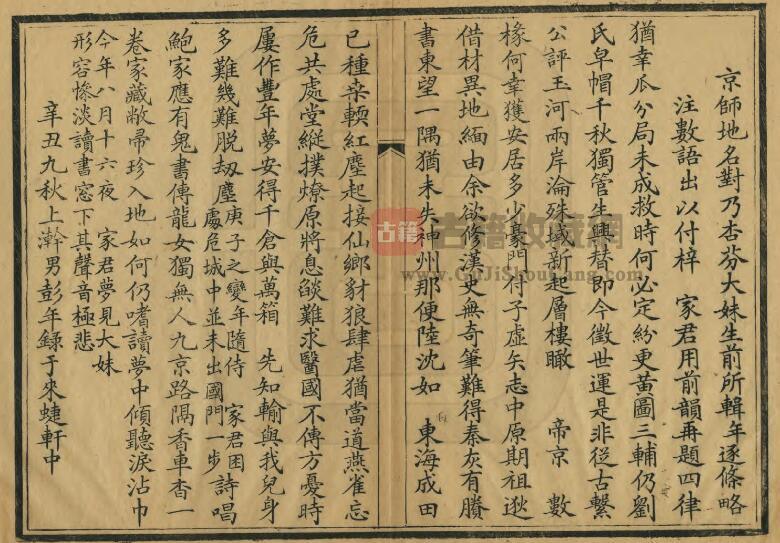 京師地名對乃杏芬大妹生前所輯年逐條略
注數語出以付梓　家君用前韻再題四律
猶幸瓜分局未成救時何必定紛更黃圖三輔仍劉
氏皁帽千秋獨管生興替即今徵世運是非從古繫
公評玉河兩岸淪殊域新起層樓瞰　帝京　數
椽何幸獲安居多少豪門付子虛矢志中原期祖逖
借材異地緬由余欲修漢史無奇筆難得秦灰有賸
書東望一隅猶未失神州那便陸沈如　東海成田
已種桑輭紅塵起接仙鄉豺狼肆虐猶當道燕雀忘
危共處堂縱撲燎原將息燄難求醫國不傳方憂時
屢作豐年夢安得千倉與萬箱　先知輸與我兒身
多難幾難脫劫塵庚子之變年隨侍　家君困處危城中並未出國門一步詩唱
鮑家應有鬼書傳龍女獨無人九京路隔香車杳一
卷家藏敝帚珍入地如何仍嗜讀夢中傾聽淚沾巾
今年八月十六夜　家君夢見大妹
形容慘淡讀書窗下其聲音極悲
辛丑九秋上澣男彭年錄于來蜨軒中
古籍
古籍收藏網
www.GuJiShouCang.com